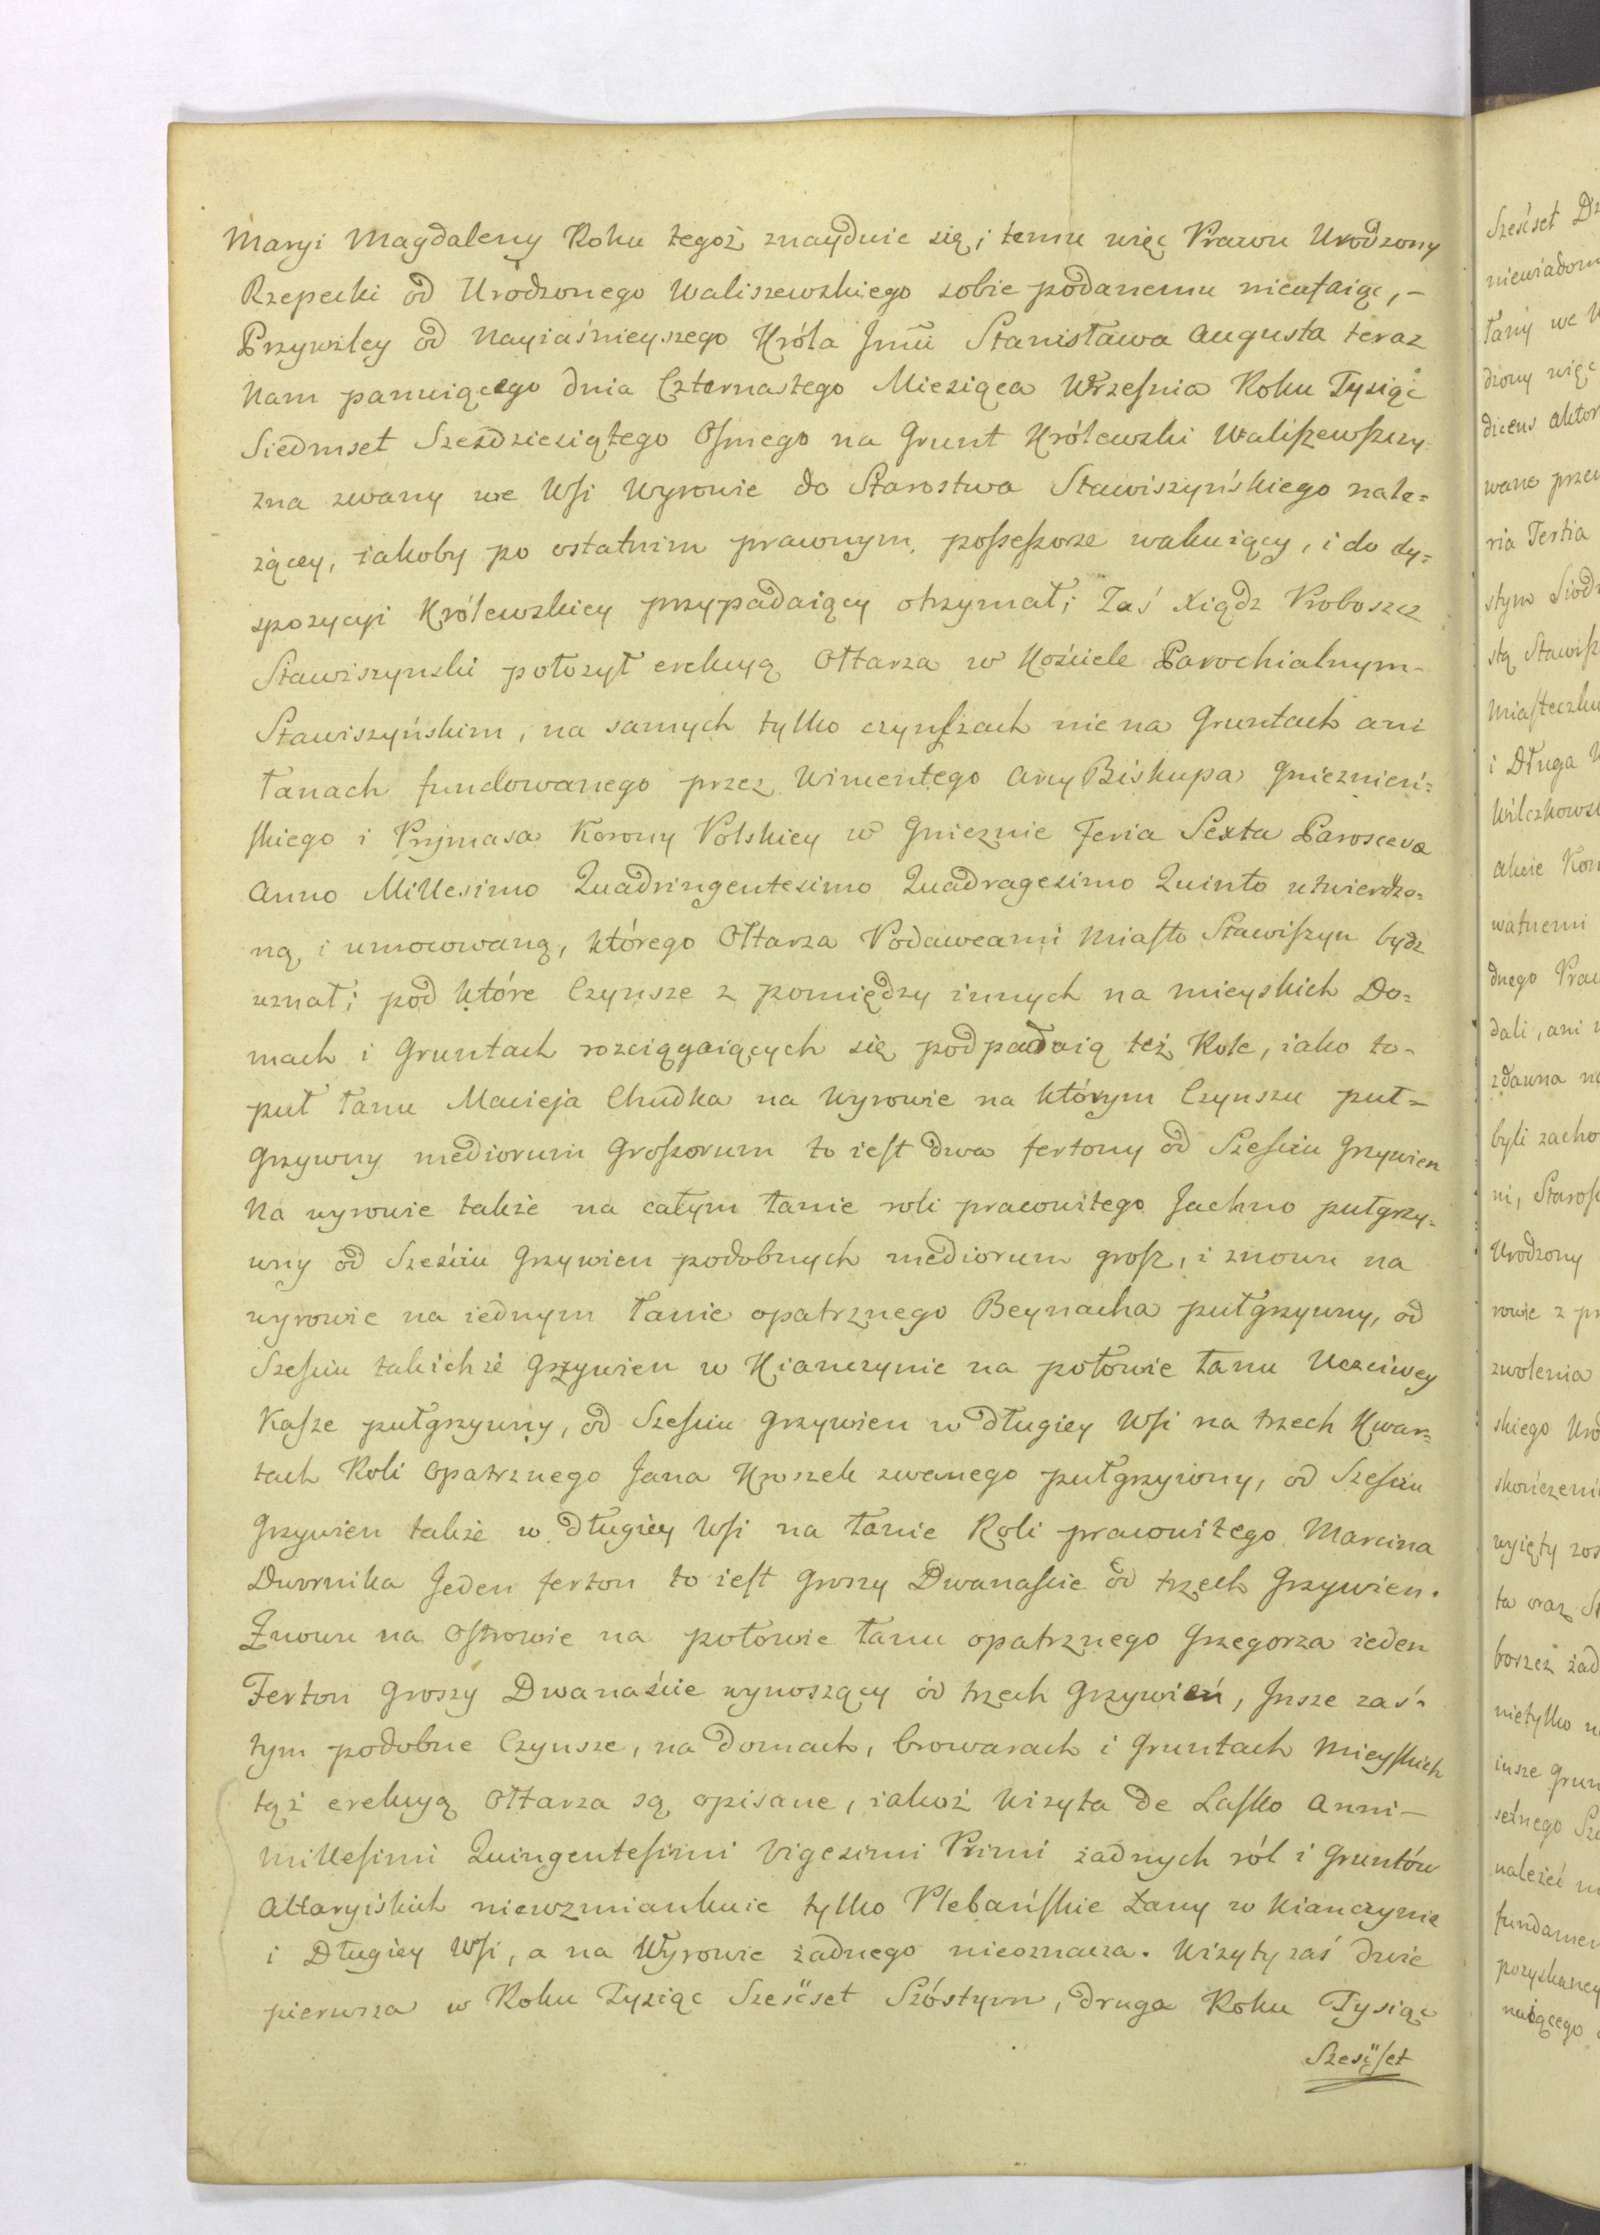 Maryi Magdaleny Roku tegoż znayduie się; temu więc Prawu Urodzony
Rzepecki od Urodzonego Waliszewskiego sobie podanemu nieufaiąc, –
Przywiley od Nayiaśnieyszego Króla Jmci Stanisława Augusta teraz
Nam panuiącego dnia Czternastego Miesiąca Września Roku Tysiąc
Siedmset Sześdziesiątego Osmego na Grunt Królewski Waliszewszczy
zna zwany we Wsi Wyrowie do Starostwa Stawiszyńskiego nale=
żącey, iakoby po ostatnim prawnym possessorze wakuiący, i do dy=
spozycyi Królewskiey przypadaiący otrzymał; Zaś Xiądz Proboszcz
Stawiszynski położył erekcyą Ołtarza w Kościele Parochialnym-
Stawiszyńskim, na samych tylko czynszach nie na Gruntach ani
Łanach fundowanego przez Wincentego Arcy Biskupa Gnieznień=
skiego i Prymasa Korony Polskiey w Gnieznie Feria Sexta Parosceva
Anno Millesimo Quadringentesimo Quadragesimo Quinto utwierdzo=
ną i umocowaną, którego Ołtarza Podawcami Miasto Stawiszyn bydz
uznał; pod które Czynsze z pomiędzy innych na mieyskich Do=
mach i Gruntach rozciągaiących się podpadaią też Role, iako to-
puł łanu Macieja Chudka na Wyrowie na którym Czynszu puł=
Grzywny mediorum Grossorum to iest dwa fertony od Szesciu Grzywien
Na wyrowie także na całym łanie roli pracowitego Jachno pułgrzy=
wny od Sześciu Grzywien podobnych mediorum gross, i znowu na
wyrowie na iednym łanie opatrznego Beynacha pułgrzywny, od
Szesciu takichże Grzywien w Kianczynie na połowie łanu Uczciwey
Kasze pułgrzywny, od Szesciu Grzywien w Długiey Wsi na trzech Kwar=
tach Roli Opatrznego Jana Kroszek zwanego pułgrzywny, od Szesciu
Grzywien także w Długiey Wsi na łanie Roli pracowitego Marcina
Dwornika Jeden ferton to iest Groszy Dwanascie od trzech Grzywien.
Znowu na Ostrowie na połowie łanu opatrznego Grzegorza ieden
Ferton Groszy Dwanaście wynoszący od trzech Grzywień, Insze zaś-
tym podobne Czynsze, na Domach, browarach i Gruntach Mieyskich
tąż erekcyą Ołtarza są opisane, iakoż Wizyta de Lasko Anni –
Millesimi Quingentesimi Vigesimi Primi żadnych ról i Gruntów
Altaryiskich niewzmiankuie tylko Plebańskie Łany w Kianczynie
i Długiey Wsi, a na Wyrowie żadnego nieoznacza. Wizyty zaś dwie
pierwsza w Roku Tysiąc Sześćset Szóstym, druga Roku Tysiąc
Sześćset
Sześćset
dziony więc
dicens aktor
ria Tertia
i Długa
zdawna
byli zacho
Urodzony
rowie z
zwolenia
skiego
nietylko
insze
należeć